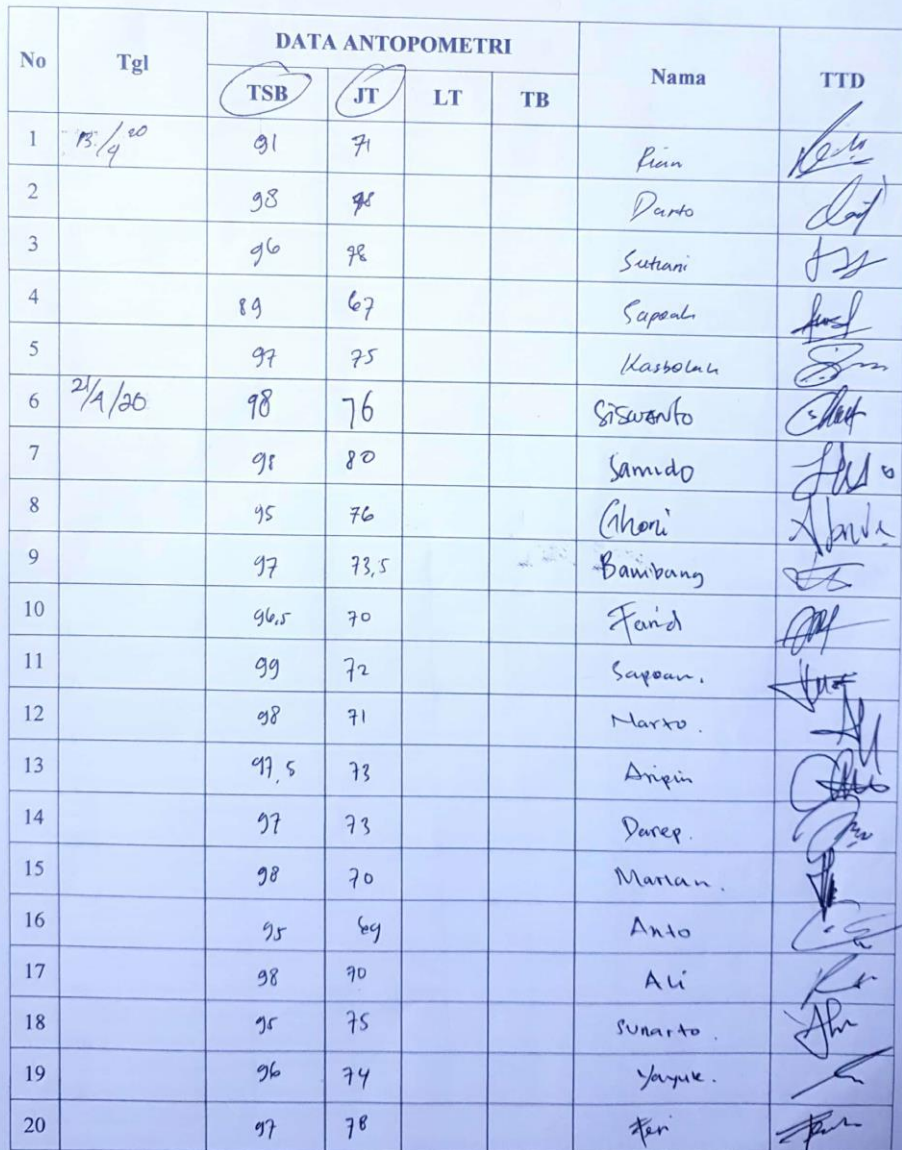 DATA ANTOPOMETRI
No Tgl TSB JT LT TB Nama TTD
1 13/4 20 91 71 Rian
2 98 78 Darto
3 96 78 Sutiani
4 89 67 Sapoah
5 97 75 Kasbolah
6 21/4/20 98 76 Siswanto
7 98 80 Samido
8 95 76 Ghoni
9 97 73,5 Bambang
10 96,5 70 Farid
11 99 72 Sapoan.
12 98 71 Marto.
13 97,5 73 Aripin
14 97 73 Darep.
15 98 70 Marlan.
16 95 69 Anto
17 98 70 Ali
18 95 75 Sunarto.
19 96 74 Yayuk.
20 97 78 Feri